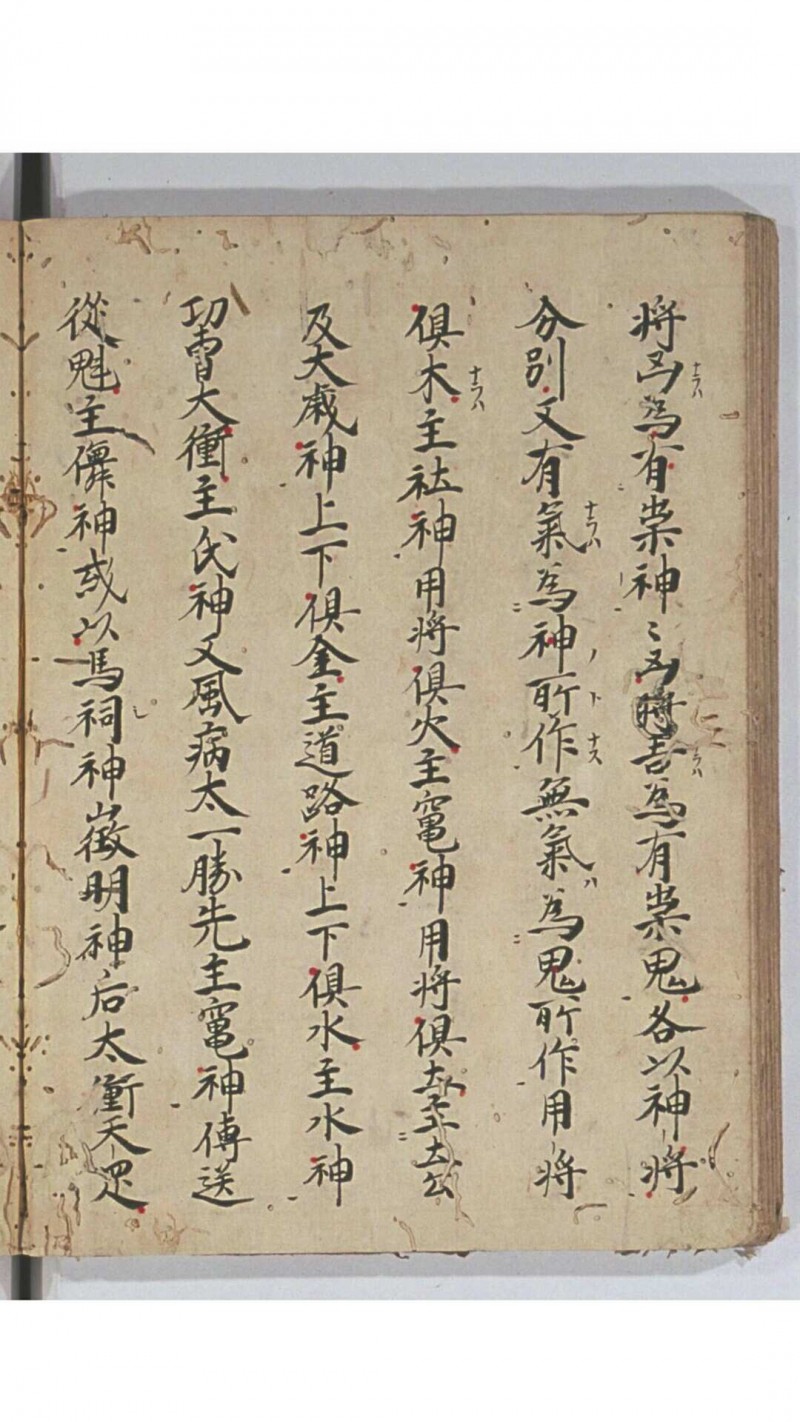 将凶為有祟神〻凶将吉為有祟鬼各以神将
分別又有氣為神所作無氣為鬼所作用将
俱木主社神用将俱火主竃神用将俱土主土公
及大歳神上下俱金主道路神上下俱水主水神
功曹大衝主氏神又風病太一勝先主竃神傳送
從魁主儛神或以馬祠神徴明神后太衝天